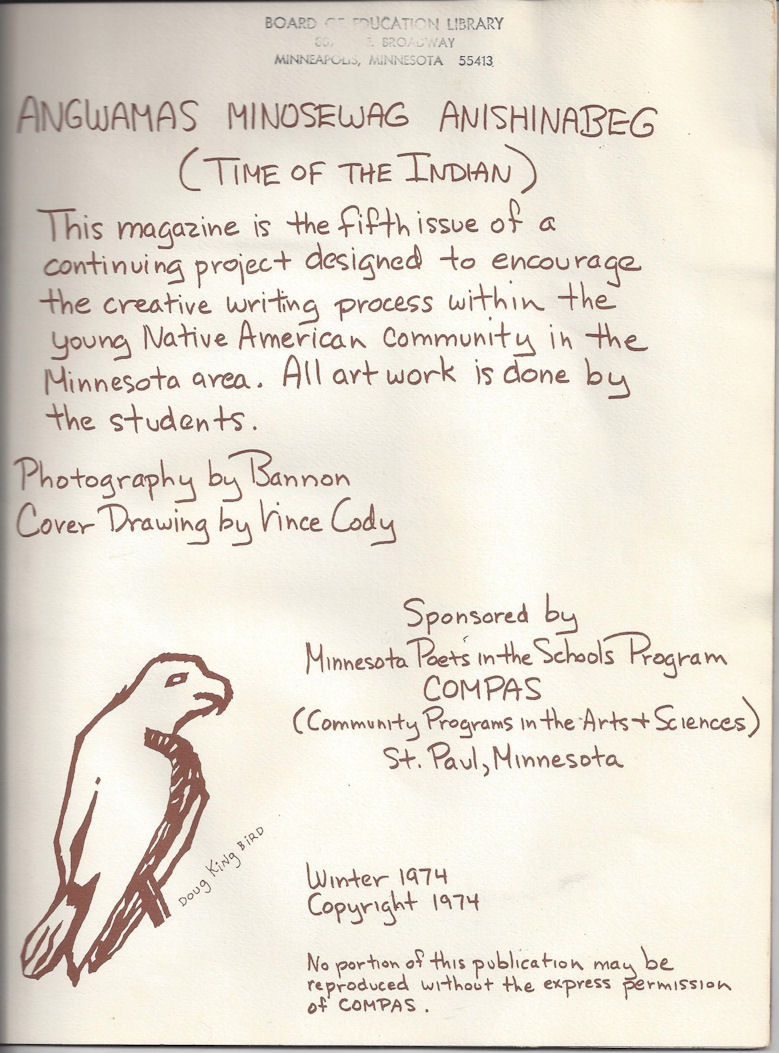 BOARD OF EDUCATION LIBRARY
BROADWAY
MINNEAPOLIS, MINNESOTA 55413
ANGWAMAS MINOSEWAG ANISHINABEG
(TIME OF THE INDIAN)
This magazine is the fifth issue of a
continuing project designed to encourage
the creative writing process within the
young Native American Community in the
Minnesota area. All art work is done by
the students.
Photography by Bannon
Cover Drawing by Vince Cody
Sponsored by
Minnesota Poets in the Schools Program
COMPAS
(Community Programs in the Arts + Sciences)
St. Paul, Minnesota
DOUG KING BIRD
Winter 1974
Copyright 1974
No portion of this publication may be
reproduced without the express permission
of COMPAS.